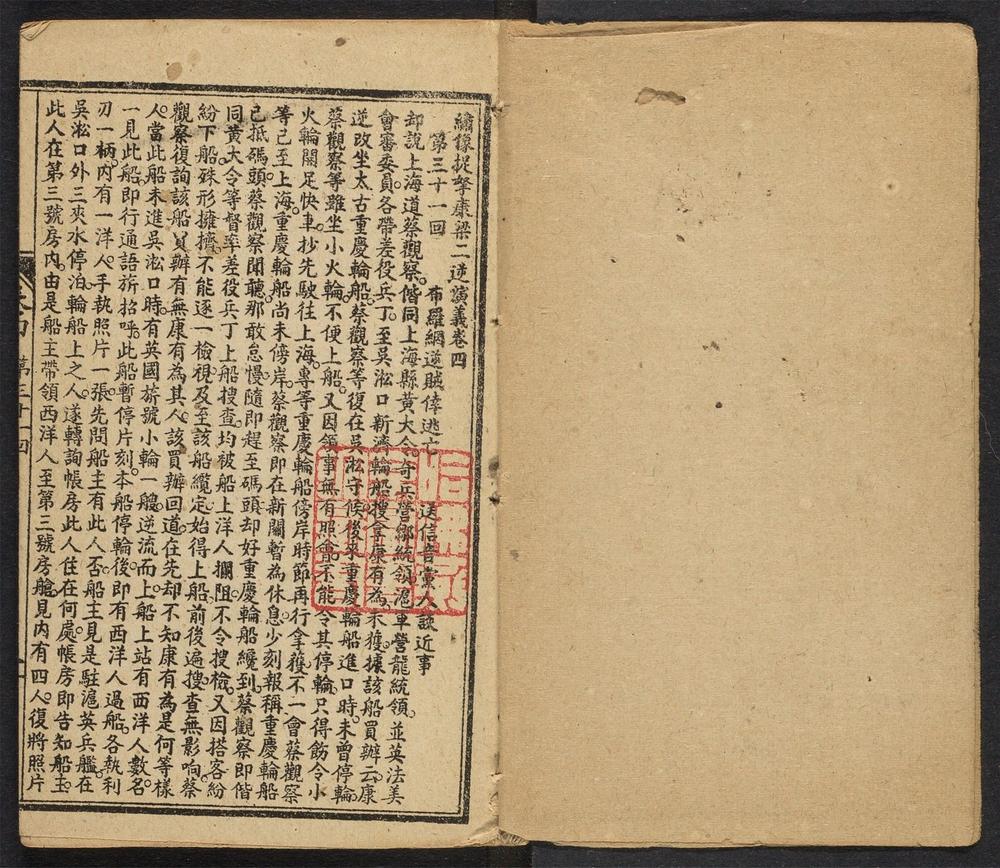 繡像捉拏康梁二逆演義卷四
第三十一回 布羅網逆賊倖逃亡 送信音黨人談近事
却說上海道蔡觀察。偕同上海縣黃大令。奇兵營鄒統領滬軍營龍統領。並英法美
會審委員。各帶差役兵丁。至吳淞口新濟輪船搜拿康有為。未獲。據該船買辦云。康
逆改坐太古重慶輪船。蔡觀察等復在吳淞守候。後來重慶輪船進口時。未曾停輪。
蔡觀察等雖坐小火輪。不便上船。又因領事無有照會。不能令其停輪。只得飭令小
火輪關足快車。抄先駛往上海。專等重慶輪船傍岸時節。再行拿獲。不一會蔡觀察
等已至上海。重慶輪船尚未傍岸。蔡觀察即在新關暫為休息。少刻報稱重慶輪船
已抵碼頭。蔡觀察聞聽。那敢怠慢。隨即趕至碼頭。却好重慶輪船纔到。蔡觀察即偕
同黃大令等督率差役兵丁上船搜查。均被船上洋人攔阻。不令搜檢。又因搭客紛
紛下船。殊形擁擠。不能逐一檢視。及至該船纜定。始得上船前後遍搜。查無影响。蔡
觀察復詢該船買辦有無康有為其人。該買辦回道。在先却不知康有為是何等樣
人。當此船未進吳淞口時。有英國旂號小輪一艘。逆流而上。船上站有西洋人數名。
一見此船。即行通語旂招呼。此船暫停片刻。本船停輪後。即有西洋人過船。各執利
刃一柄。內有一洋人。手執照片一張。先問船主有此人否。船主見是駐滬英兵艦在
吳淞口外三夾水停泊輪船上之人。遂轉詢帳房此人住在何處。帳房即告知船主。
此人在第三號房內。由是船主帶領西洋人至第三號房艙。見內有四人。復將照片
卷四 第三十一回